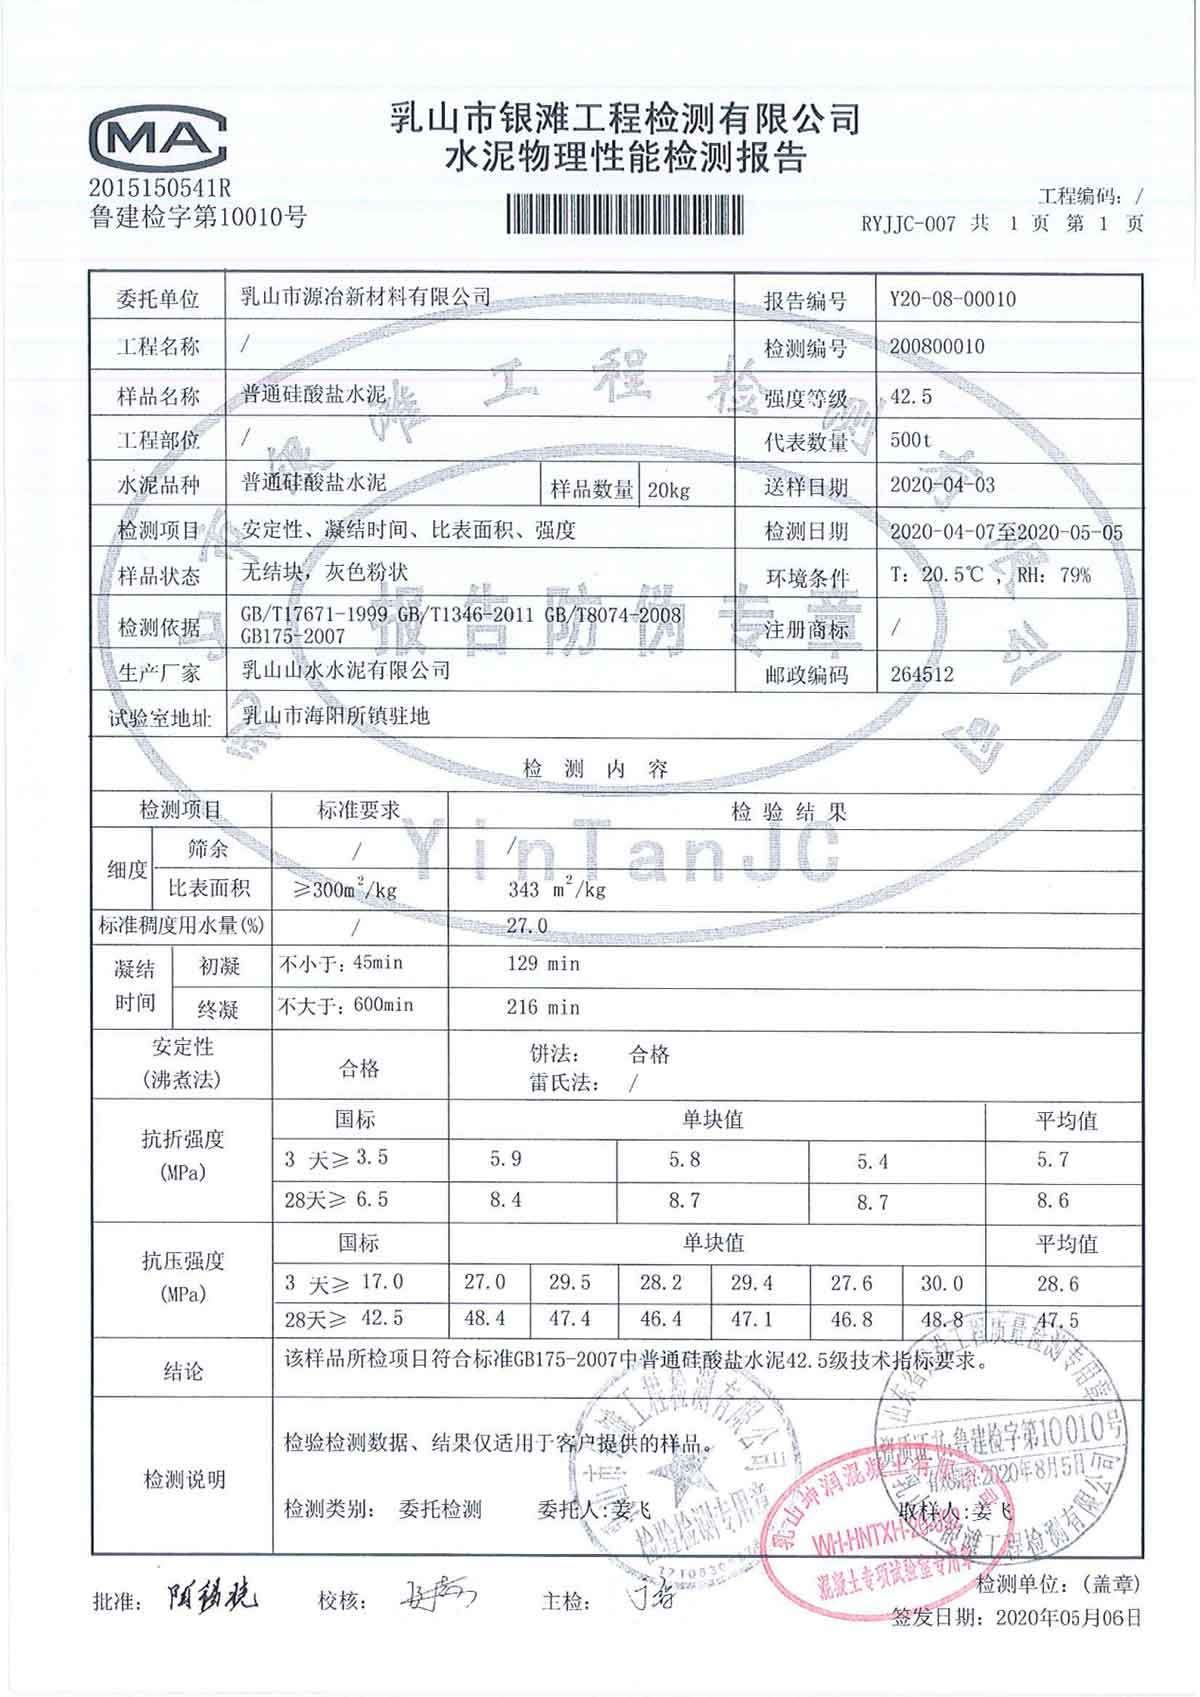 CMA
2015150541R
鲁建检字第10010号
乳山市银滩工程检测有限公司
水泥物理性能检测报告
工程编码：/
RYJJC-007 共 1 页 第 1 页
委托单位 乳山市源冶新材料有限公司 报告编号 Y20-08-00010
工程名称 / 检测编号 200800010
样品名称 普通硅酸盐水泥 强度等级 42.5
工程部位 / 代表数量 500t
水泥品种 普通硅酸盐水泥 样品数量 20kg 送样日期 2020-04-03
检测项目 安定性、凝结时间、比表面积、强度 检测日期 2020-04-07至2020-05-05
样品状态 无结块，灰色粉状 环境条件 T：20.5℃ ，RH：79%
检测依据 GB/T17671-1999 GB/T1346-2011 GB/T8074-2008
GB175-2007 注册商标 /
生产厂家 乳山山水水泥有限公司 邮政编码 264512
试验室地址 乳山市海阳所镇驻地
报告防伪专章
YinTanJC
检 测 内 容
检测项目 标准要求 检 验 结 果
细度 筛余 / /
比表面积 ≥300m²/kg 343 m²/kg
标准稠度用水量(%) / 27.0
凝结时间 初凝 不小于：45min 129 min
终凝 不大于：600min 216 min
安定性
(沸煮法) 合格 饼法： 合格
雷氏法： /
抗折强度
(MPa) 国标 单块值 平均值
3 天≥ 3.5 5.9 5.8 5.4 5.7
28天≥ 6.5 8.4 8.7 8.7 8.6
抗压强度
(MPa) 国标 单块值 平均值
3 天≥ 17.0 27.0 29.5 28.2 29.4 27.6 30.0 28.6
28天≥ 42.5 48.4 47.4 46.4 47.1 46.8 48.8 47.5
结论 该样品所检项目符合标准GB175-2007中普通硅酸盐水泥42.5级技术指标要求。
检测说明 检验检测数据、结果仅适用于客户提供的样品。
检测类别： 委托检测 委托人:姜飞 取样人:姜飞
检验检测专用章
鲁建检字第10010号
2020年8月5日
乳山坤润混凝土有限公司
混凝土专项试验室专用章
批准： 校核： 主检：
检测单位：(盖章)
签发日期：2020年05月06日